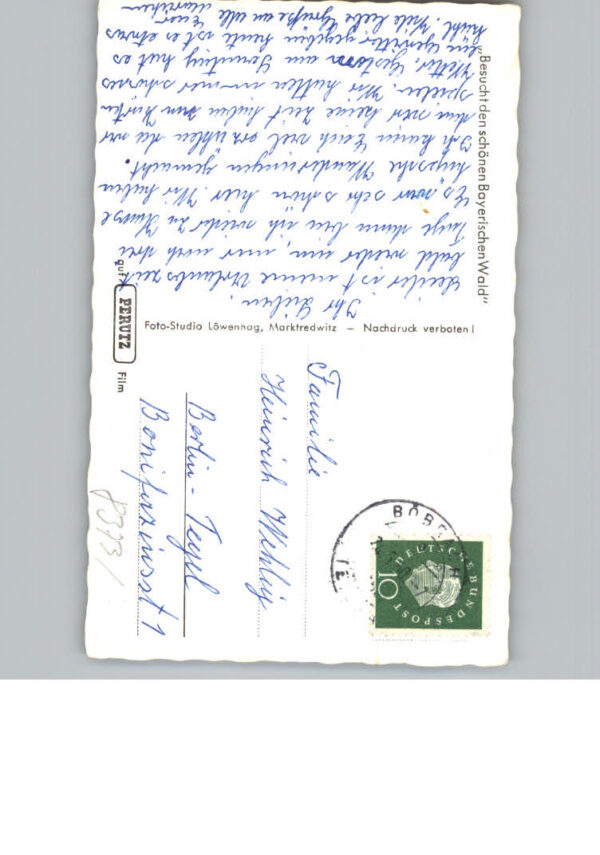 „Besucht den schönen Bayerischen Wald"
Ihr Lieben.
Leider ist meine Urlaubszeit
bald wieder um, nur noch drei
Tage dann bin ich wieder zu Hause
Es war sehr schön hier. Wir haben
hügsche Wanderungen gemacht.
Ich kann Euch viel erzählen da wir
dann wir keine Zeit haben zum Karten
spielen. Wir hatten immer schönes
Wetter. Gestern am Sonntag hat es
ein Gewitter gegeben heute ist es etwas
kühl. Viele liebe Grüße an alle Euer
Foto-Studio Löwenhag, Marktredwitz – Nachdruck verboten!
gut
PERUTZ
Film
Familie
Heinrich Wehlig
Berlin-Tegel
Bonifaziusst 1
8373/
DEUTSCHE BUNDESPOST
10